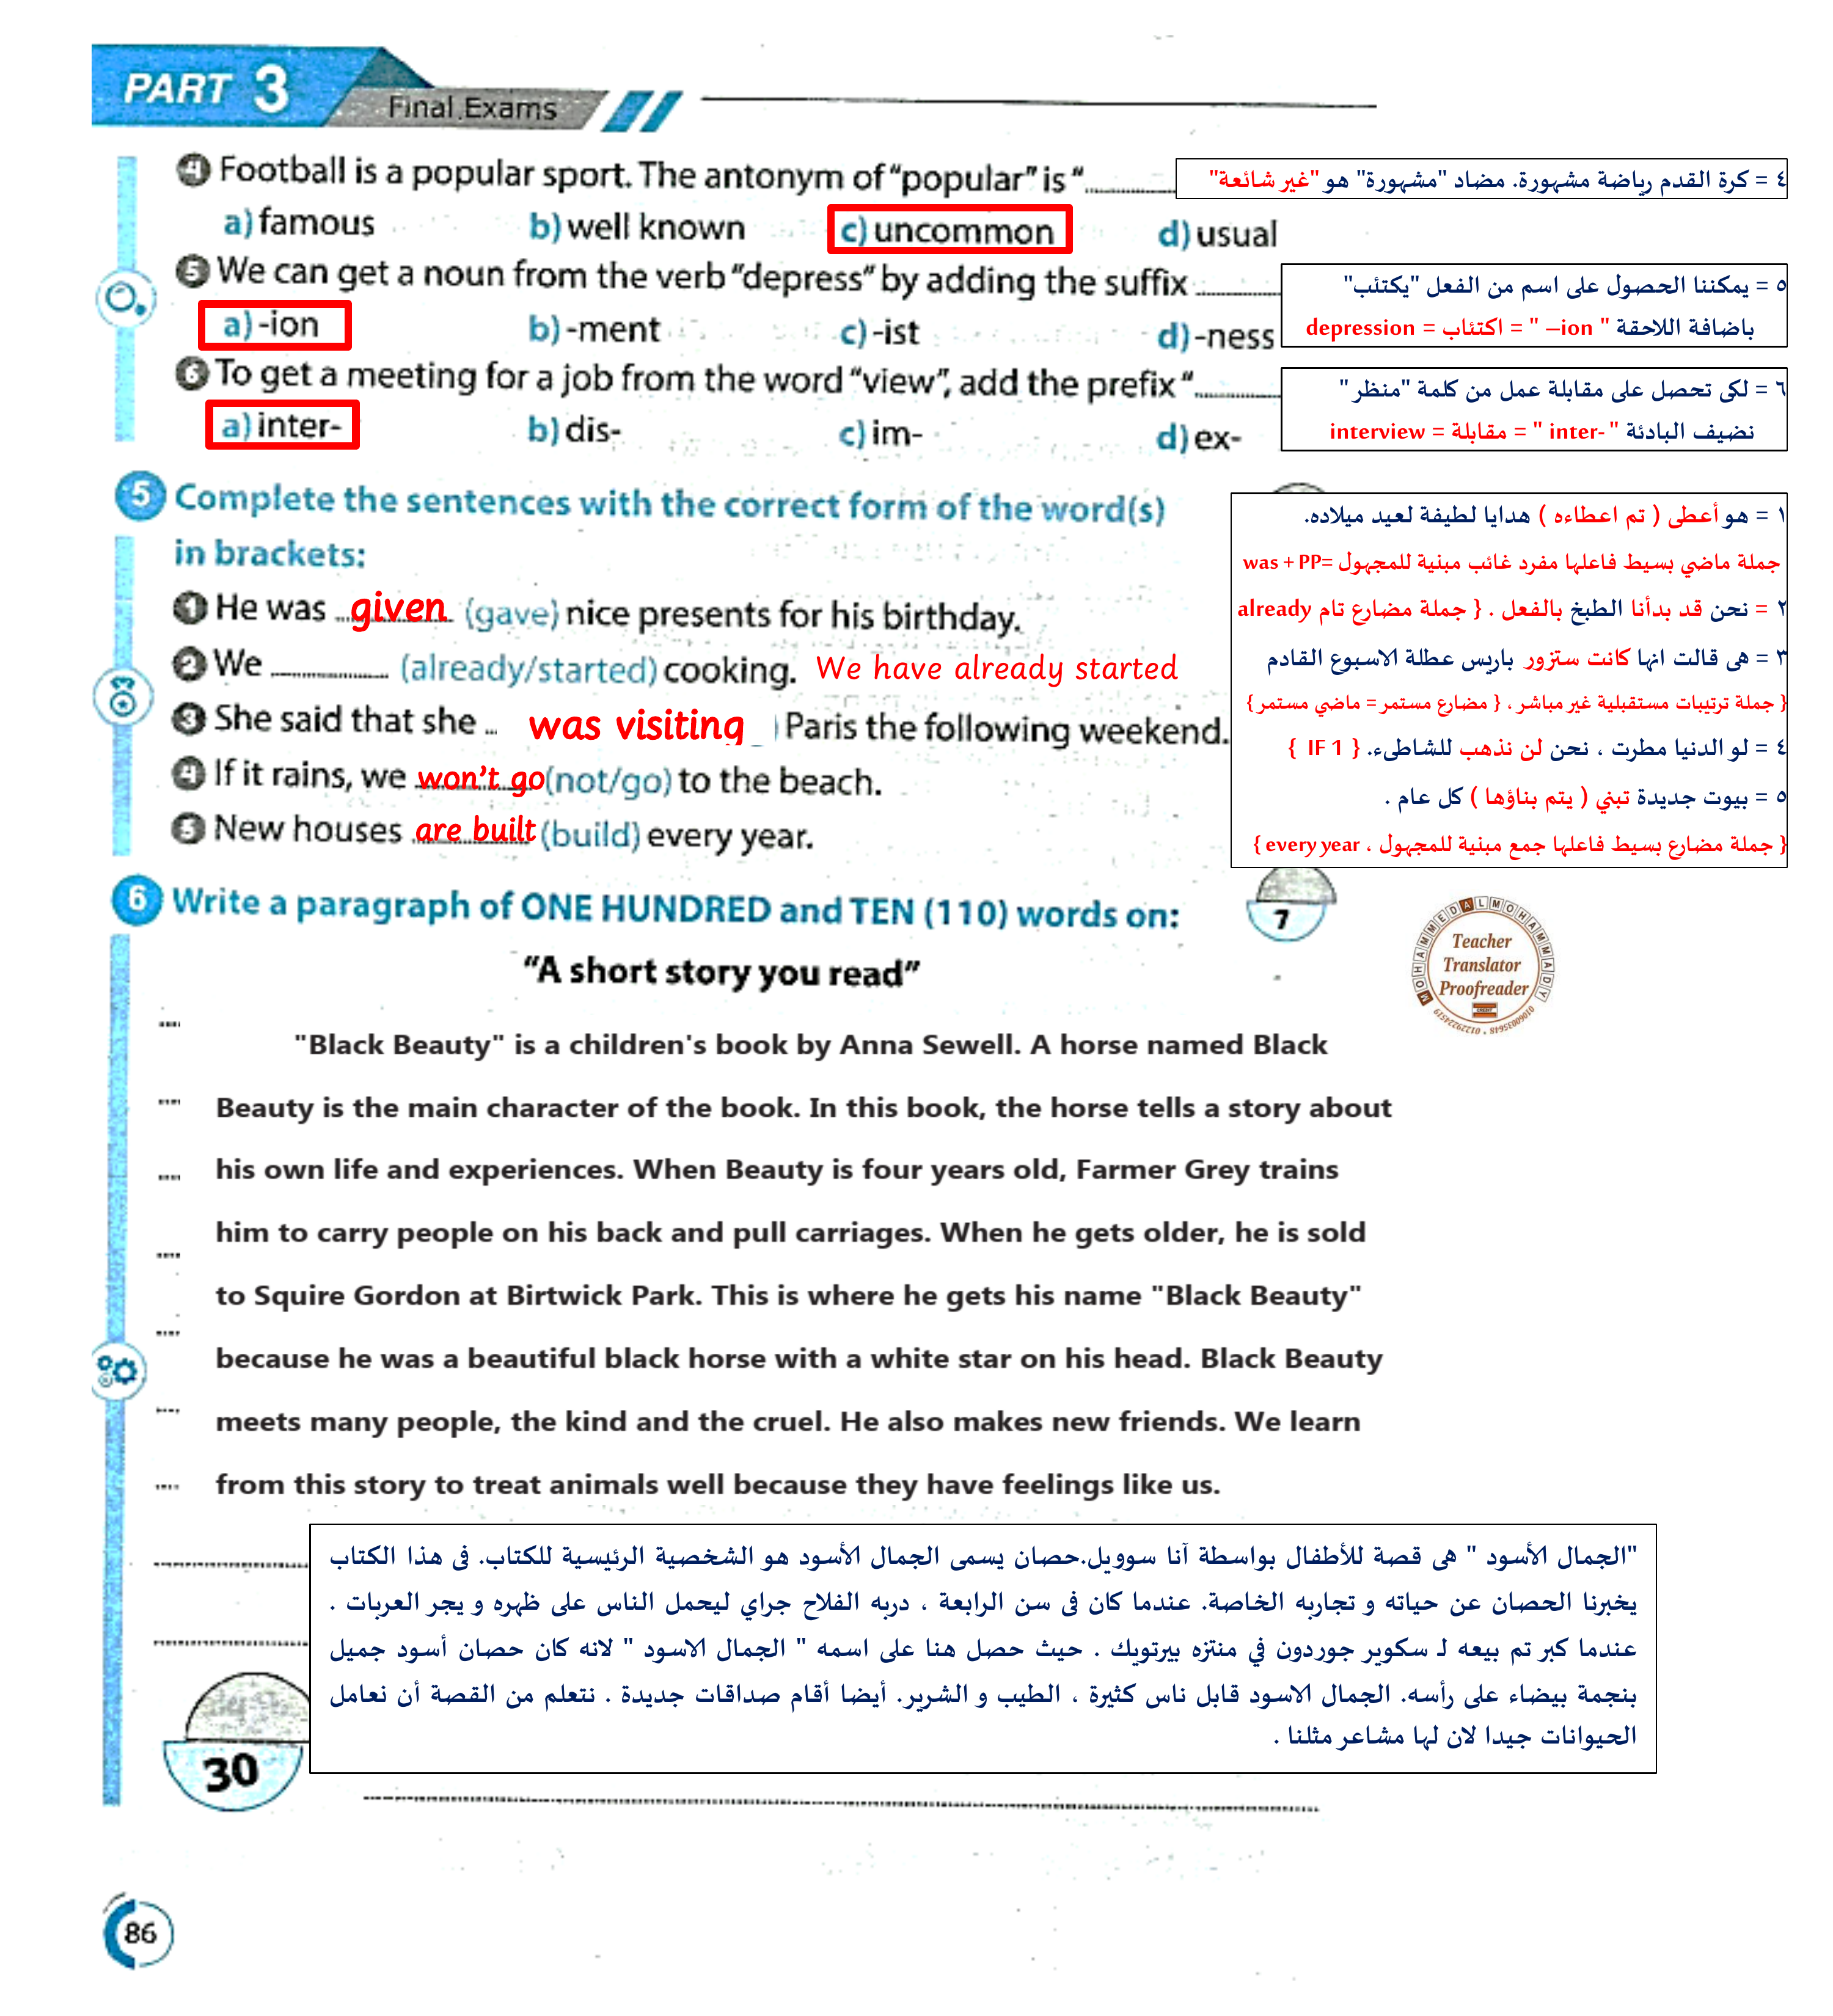 PART 3
Final Exams
4 Football is a popular sport. The antonym of “popular” is “..............
٤ = كرة القدم رياضة مشهورة. مضاد "مشهورة" هو "غير شائعة"
a) famous b) well known c) uncommon d) usual
5 We can get a noun from the verb “depress” by adding the suffix ..............
٥ = يمكننا الحصول على اسم من الفعل "يكتئب"
باضافة اللاحقة " ion– " = اكتئاب = depression
a) -ion b) -ment c) -ist d) -ness
6 To get a meeting for a job from the word “view”, add the prefix “..............
٦ = لكى تحصل على مقابلة عمل من كلمة "منظر"
نضيف البادئة " -inter " = مقابلة = interview
a) inter- b) dis- c) im- d) ex-
5 Complete the sentences with the correct form of the word(s)
in brackets:
1 He was given (gave) nice presents for his birthday.
2 We .................. (already/started) cooking. We have already started
3 She said that she ... was visiting ) Paris the following weekend.
4 If it rains, we won’t go (not/go) to the beach.
5 New houses are built (build) every year.
١ = هو أعطى ( تم اعطاءه ) هدايا لطيفة لعيد ميلاده.
جملة ماضي بسيط فاعلها مفرد غائب مبنية للمجهول =was + PP
٢ = نحن قد بدأنا الطبخ بالفعل . { جملة مضارع تام already
٣ = هى قالت انها كانت ستزور باريس عطلة الاسبوع القادم
{ جملة ترتيبات مستقبلية غير مباشر ، { مضارع مستمر = ماضي مستمر }
٤ = لو الدنيا مطرت ، نحن لن نذهب للشاطىء. { IF 1 }
٥ = بيوت جديدة تبني ( يتم بناؤها ) كل عام .
{ جملة مضارع بسيط فاعلها جمع مبنية للمجهول ، every year }
6 Write a paragraph of ONE HUNDRED and TEN (110) words on:
7
“A short story you read”
MOHAMMED ALMOHAMMADY
Teacher
Translator
Proofreader
"Black Beauty" is a children's book by Anna Sewell. A horse named Black
Beauty is the main character of the book. In this book, the horse tells a story about
his own life and experiences. When Beauty is four years old, Farmer Grey trains
him to carry people on his back and pull carriages. When he gets older, he is sold
to Squire Gordon at Birtwick Park. This is where he gets his name "Black Beauty"
because he was a beautiful black horse with a white star on his head. Black Beauty
meets many people, the kind and the cruel. He also makes new friends. We learn
from this story to treat animals well because they have feelings like us.
"الجمال الأسود " هى قصة للأطفال بواسطة آنا سوويل.حصان يسمى الجمال الأسود هو الشخصية الرئيسية للكتاب. فى هذا الكتاب
يخبرنا الحصان عن حياته و تجاربه الخاصة. عندما كان فى سن الرابعة ، دربه الفلاح جراي ليحمل الناس على ظهره و يجر العربات .
عندما كبر تم بيعه لـ سكوير جوردون في منتزه بيرتويك . حيث حصل هنا على اسمه " الجمال الاسود " لانه كان حصان أسود جميل
بنجمة بيضاء على رأسه. الجمال الاسود قابل ناس كثيرة ، الطيب و الشرير. أيضا أقام صداقات جديدة . نتعلم من القصة أن نعامل
الحيوانات جيدا لان لها مشاعر مثلنا .
30
86